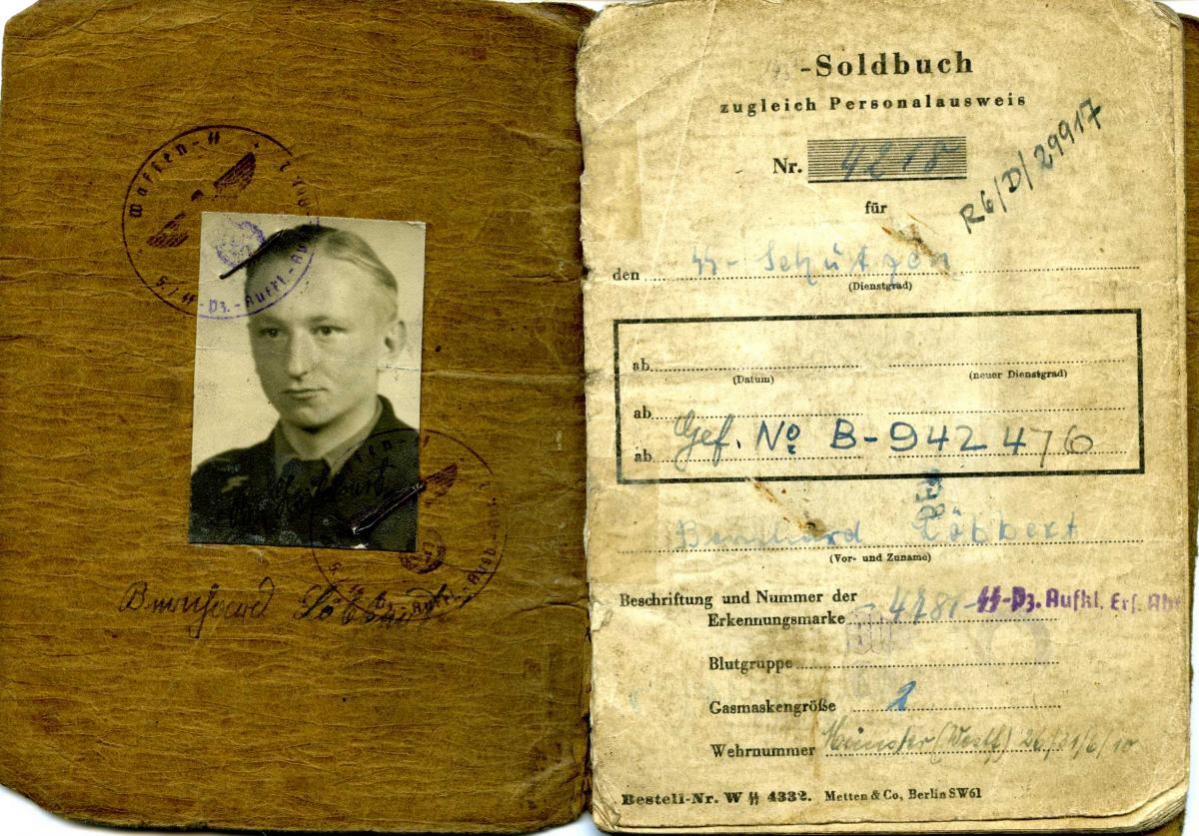 Waffen-SS
5./SS-Pz.-Aufkl.-Ausb.-
Bernhard Löbbert
-Soldbuch
zugleich Personalausweis
Nr. 4218
R6/D/29917
für
den SS-Schützen
(Dienstgrad)
ab
(Datum) (neuer Dienstgrad)
ab
ab Gef. No B-942476
Bernhard Löbbert
(Vor- und Zuname)
Beschriftung und Nummer der
Erkennungsmarke -4781- SS-Pz. Aufkl. Ers. Abt
Blutgruppe
Gasmaskengröße 2
Wehrnummer Münster (Westf) 26/21/6/10
Bestell-Nr. W SS 4332. Metten & Co, Berlin SW61